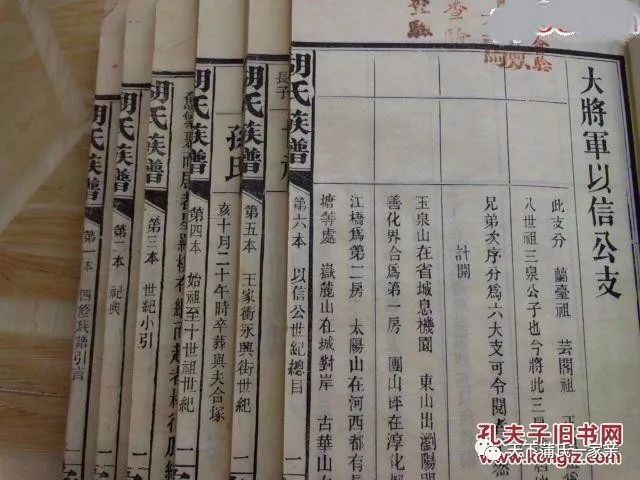 大將軍以信公支
此支分 蘭臺祖 芸閣祖
入世祖三泉公子也今將此三房
兄弟次序分為六大支可令閱者
計開
玉泉山在省城息機園 東山出瀏陽門
善化界合為第一房 團山坪在淳化
江橋為第二房 太陽山在河西都有
塘等處 嶽麓山在城對岸 古華山在
胡氏族譜 第六本 以信公世紀總目 一
長子
胡氏族譜 第五本 王家衝永興街世紀 一
孫氏
亥十月二十午時卒葬與夫合塚
胡氏族譜 第四本 始祖至十世祖世紀 一
胡氏族譜 第三本 世紀小引 一
胡氏族譜 第二本 祀典 一
胡氏族譜 第一本 四修族譜引言 一
查驗
孔夫子旧书网
天下蒲氏一家亲